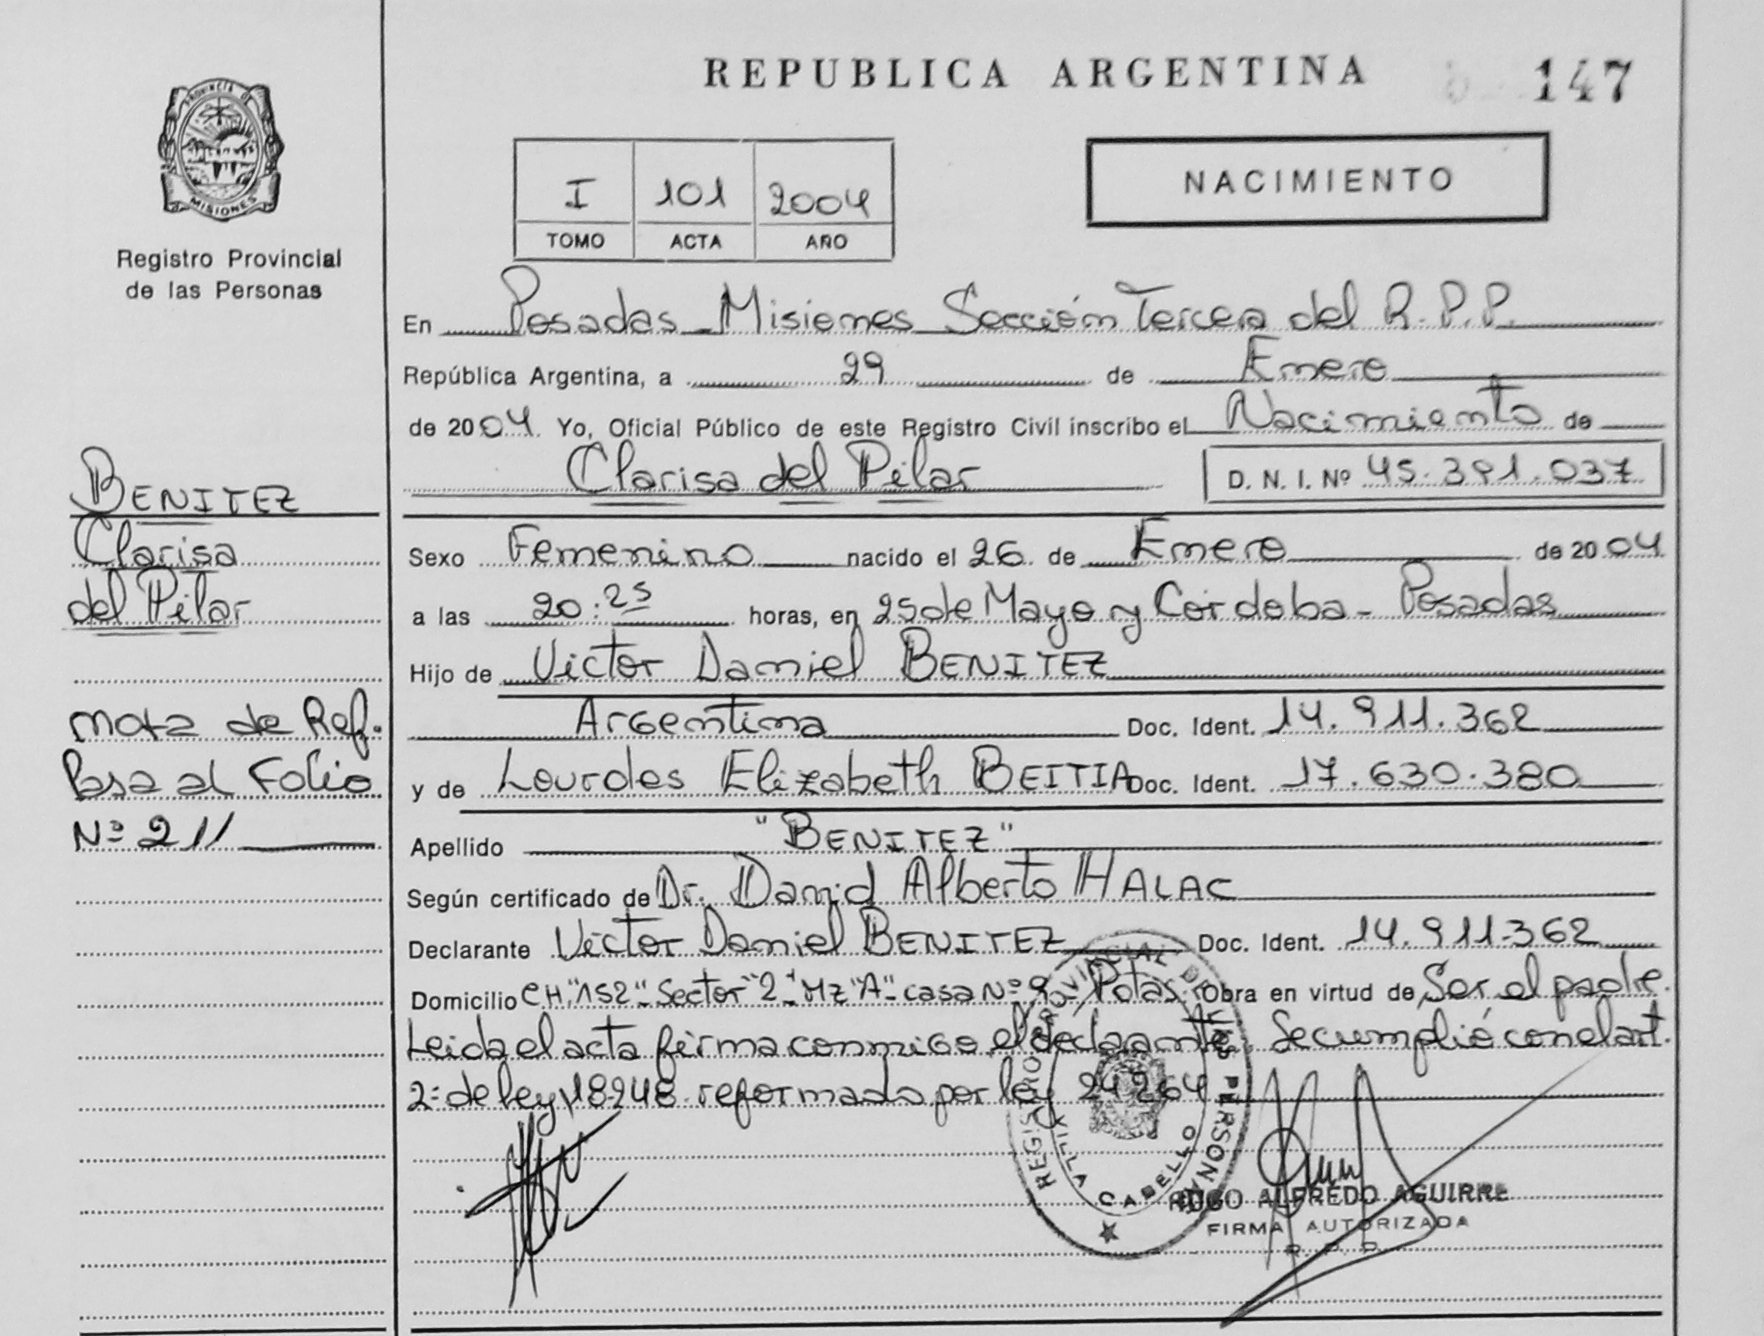 REPUBLICA ARGENTINA
147
PROVINCIA DE
MISIONES
Registro Provincial
de las Personas
I 101 2004
TOMO ACTA AÑO
NACIMIENTO
En Posadas Misiones Sección Tercera del R.P.P.
República Argentina, a 29 de Enero
de 2004. Yo, Oficial Público de este Registro Civil inscribo el Nacimiento de
Clarisa del Pilar D. N. I. Nº 45.391.037
Sexo Femenino nacido el 26 de Enero de 2004
a las 20:25 horas, en 25 de Mayo y Córdoba - Posadas
Hijo de Victor Daniel BENITEZ
Argentina Doc. Ident. 14.911.362
y de Lourdes Elizabeth BEITIA Doc. Ident. 17.630.380
Apellido "BENITEZ"
Según certificado de Dr. David Alberto HALAC
Declarante Victor Daniel BENITEZ Doc. Ident. 14.911.362
Domicilio CH. "152" Sector "2" Mz "A" casa Nº 9 - Pdas. Obra en virtud de Ser el padre.
Leida el acta firma conmigo el declarante. Se cumplió con el art.
2: de ley 18248 reformada por ley 24264
BENITEZ
Clarisa
del Pilar
nota de Ref.
Pasa al Folio
Nº 211
REGISTRO PROVINCIAL DE LAS PERSONAS
VILLA CABELLO
HUGO ALFREDO AGUIRRE
FIRMA AUTORIZADA
R. P. P.